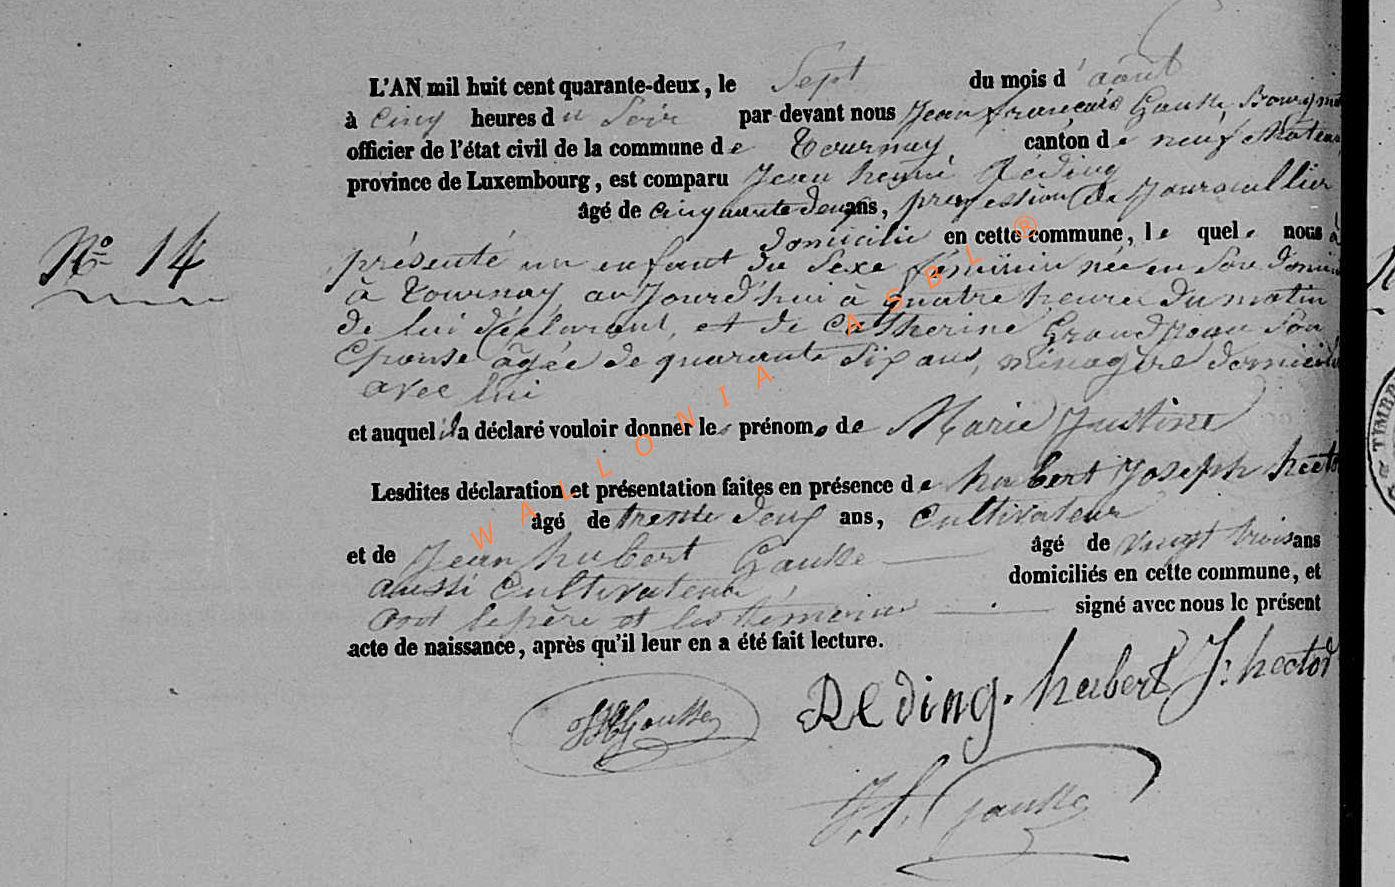 L'AN mil huit cent quarante-deux, le Sept du mois d'août
à cinq heures du Soir par devant nous Jean françois Gausse
officier de l'état civil de la commune de Tournay canton de neufchateau
province de Luxembourg, est comparu Jean henri Réding
âgé de cinquante deux ans, profession de Journallier
domicilié en cette commune, le quel nous a
N° 14
présenté un enfant du Sexe féminin née en Son domi
à Tournay aujourd'hui à quatre heures du matin
de lui déclarant, et de Catherine GrandJean Son
Epouse âgée de quarante Six ans, ménagère domicilié
avec lui
et auquel il a déclaré vouloir donner les prénoms de Marie Justine
Lesdites déclaration et présentation faites en présence de hubert Joseph hector
âgé de trente deux ans, Cultivateur
et de Jean hubert Gausse âgé de vingt trois ans
aussi Cultivateur domiciliés en cette commune, et
ont le père et les témoins signé avec nous le présent
acte de naissance, après qu'il leur en a été fait lecture.
Reding. hubert J: hector
JHGausse
J. f. Gausse
WALLONIA ASBL ®
TIMBR